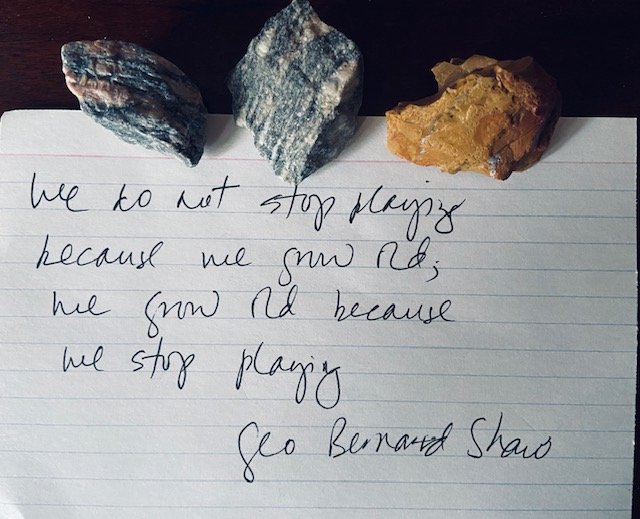 We do not stop playing
because we grow old;
we grow old because
we stop playing
Geo Bernard Shaw